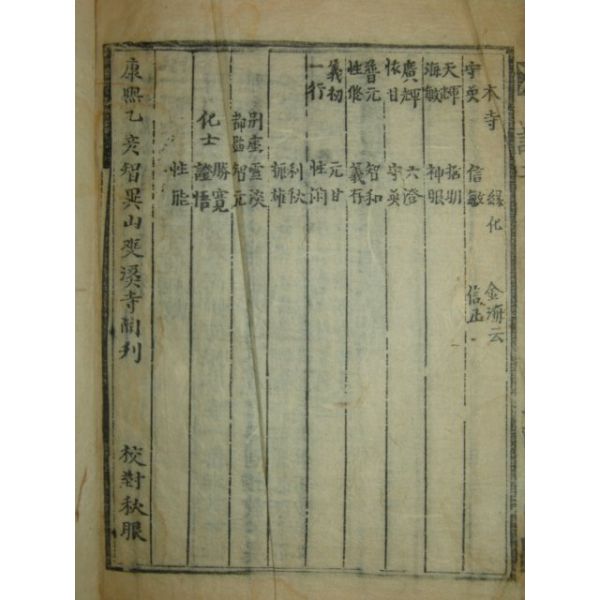 本寺 緣化 金海云
信敏 信正
天輝 拓明
海敏 神眼
廣輝 六澄
依甘 守英
普元 智和
性俊 義存
義初 元甘
一行 性潤
利秋
振雄
別座 雲淡
都監 智元
化士 勝寬
證悟
性能
康熙乙亥智異山雙溪寺開刊 校對秋眼